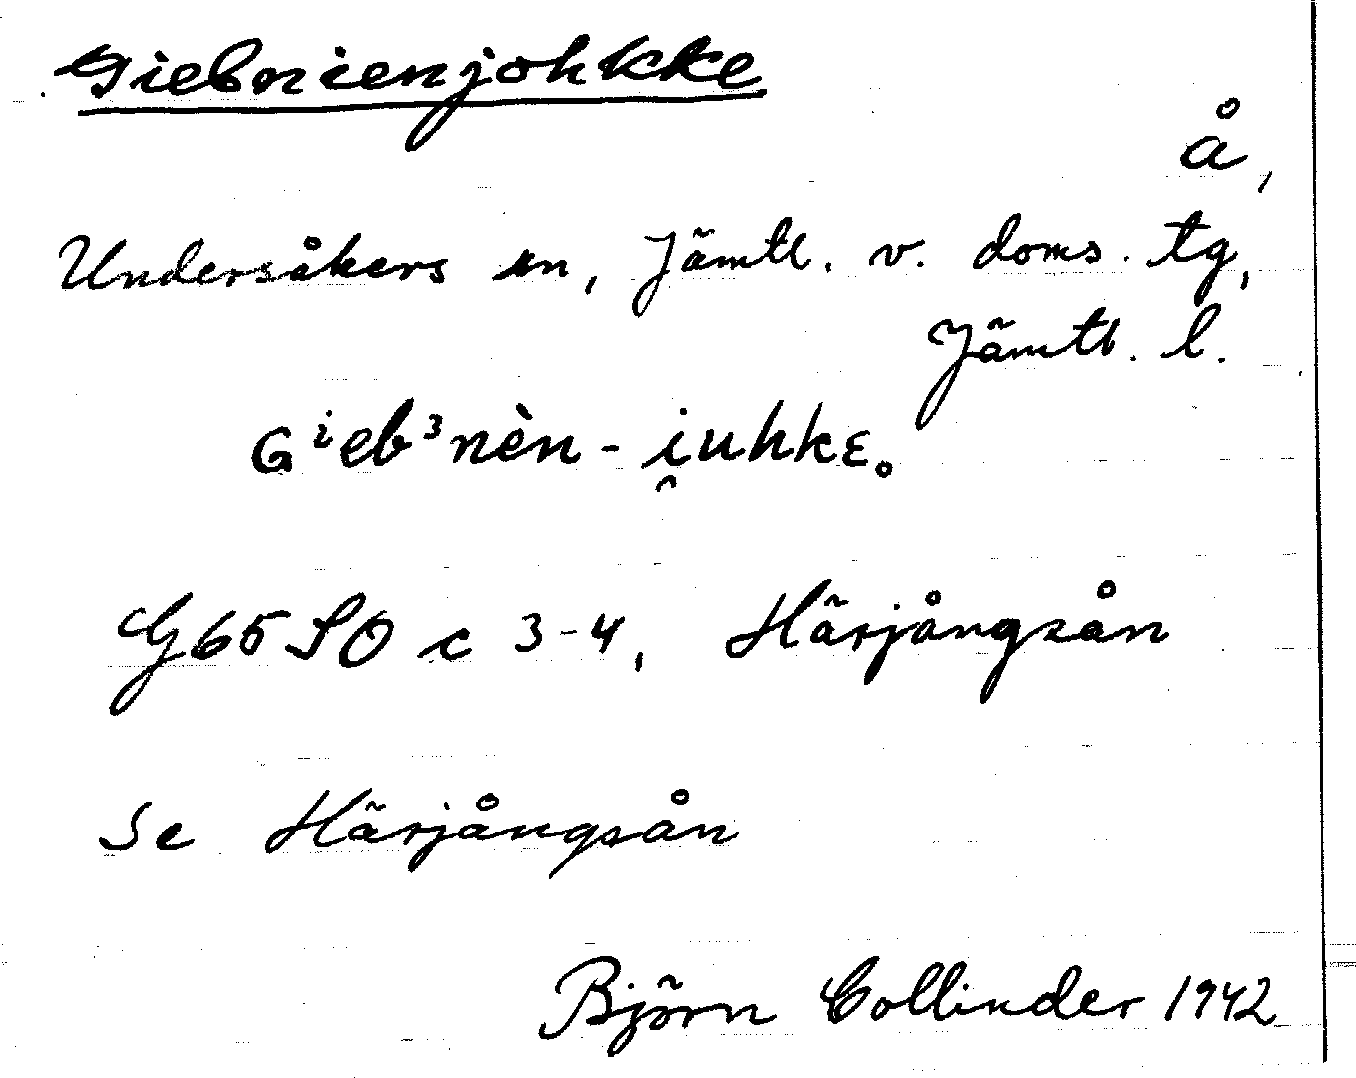 Giebnienjohkke
å,
Undersåkers sn, Jämtl. v. doms. tg,
Jämtl. l.
Gⁱeb³nèn-i̯uhkɛ̥
G65SO c 3-4, Härjångsån
Se Härjångsån
Björn Collinder 1942